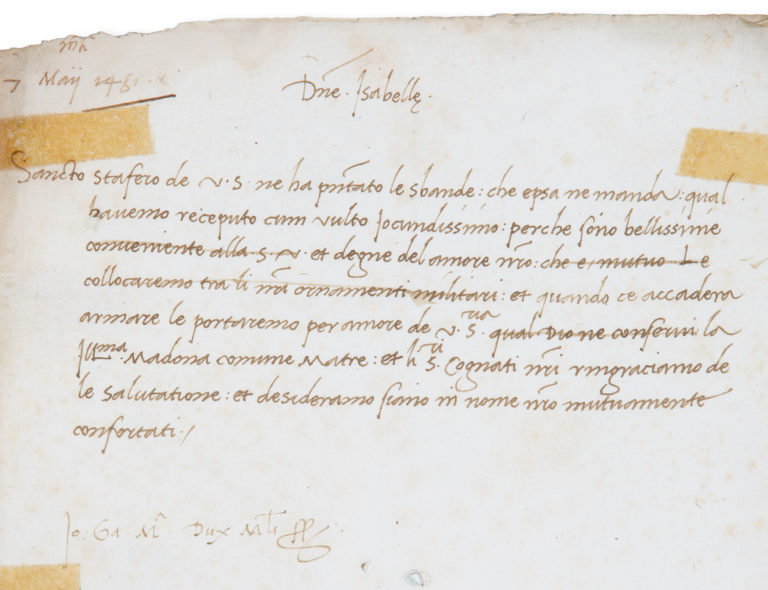 7 Maij 148
Dne. Isabelle.
Sancto stafero de v. s. ne ha pntato le sbande: che epsa ne manda: qual
havemo receputo cum vulto Jocundissimo: perche sono bellissime
conveniente alla s. v. et degne del amore nro: che e mutuo Le
collocaremo tra li nri ornamenti militari: et quando ce accadera
armare le portaremo per amore de v. s.ria qual Dio ne conservi la
Ill.ma Madona comune Matre: et li s.ri Cognati nri ringraciamo de
le salutatione: et desideramo siano in nome nro mutuamente
confortati./
Jo. Ga. M. Dux Mli